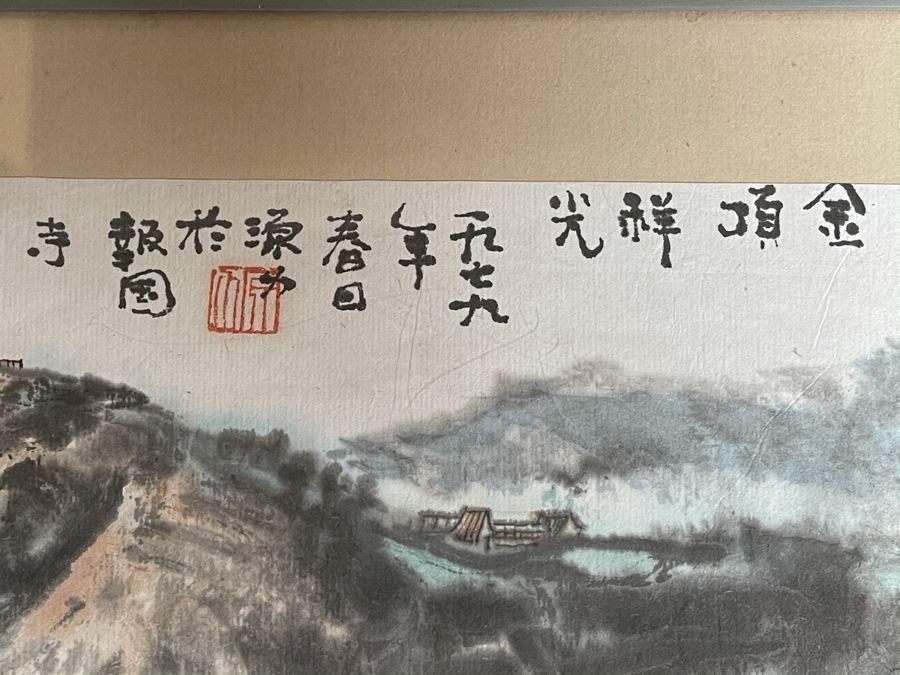 金頂祥光
一九七九年春日源力於報國寺